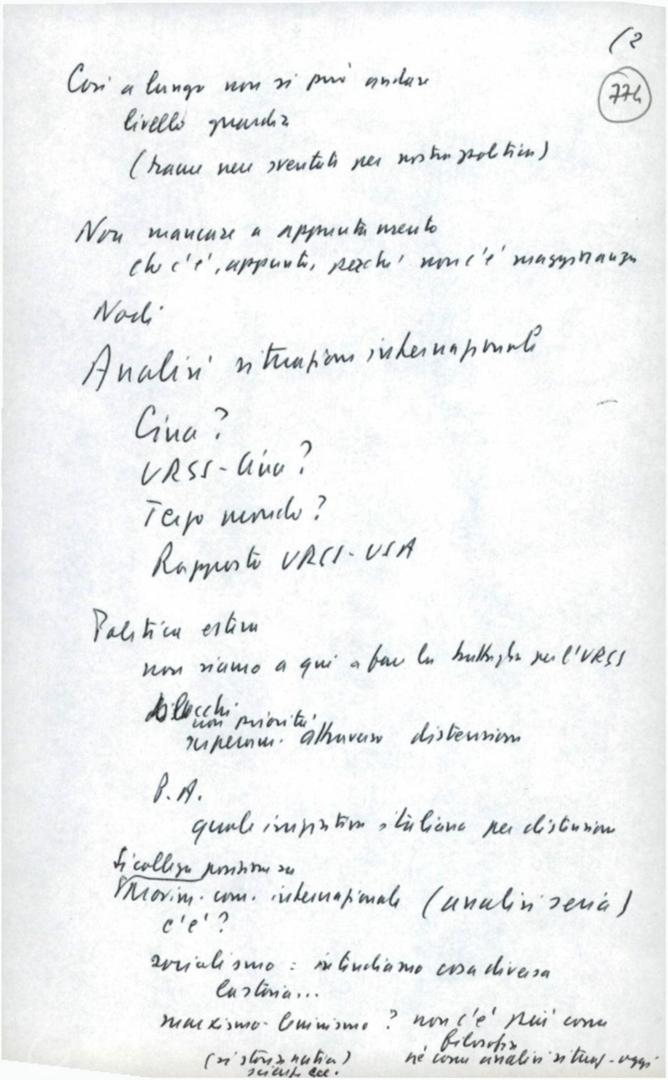 (2
774
Così a lungo non si può andare
livello guardia
(trame nere sventate per nostra politica)
Non mancare a appuntamento
che c'è, appunto, perché non c'è maggioranza
Nodi
Analisi situazione internazionale
Cina?
URSS-Cina?
Terzo mondo?
Rapporto URSS-USA
Politica estera
non siamo a qui a fare la battaglia per l'URSS
blocchi
non priorità
superam. attraverso distensione
P.A.
quale iniziativa italiana per distensione
Si collega posizione su
Movim. com. internazionale (analisi seria)
c'è?
socialismo: intendiamo cosa diversa
La storia...
marxismo-leninismo? non c'è più come
filosofia
(sistematica) né come analisi situaz. oggi
scient. ecc.